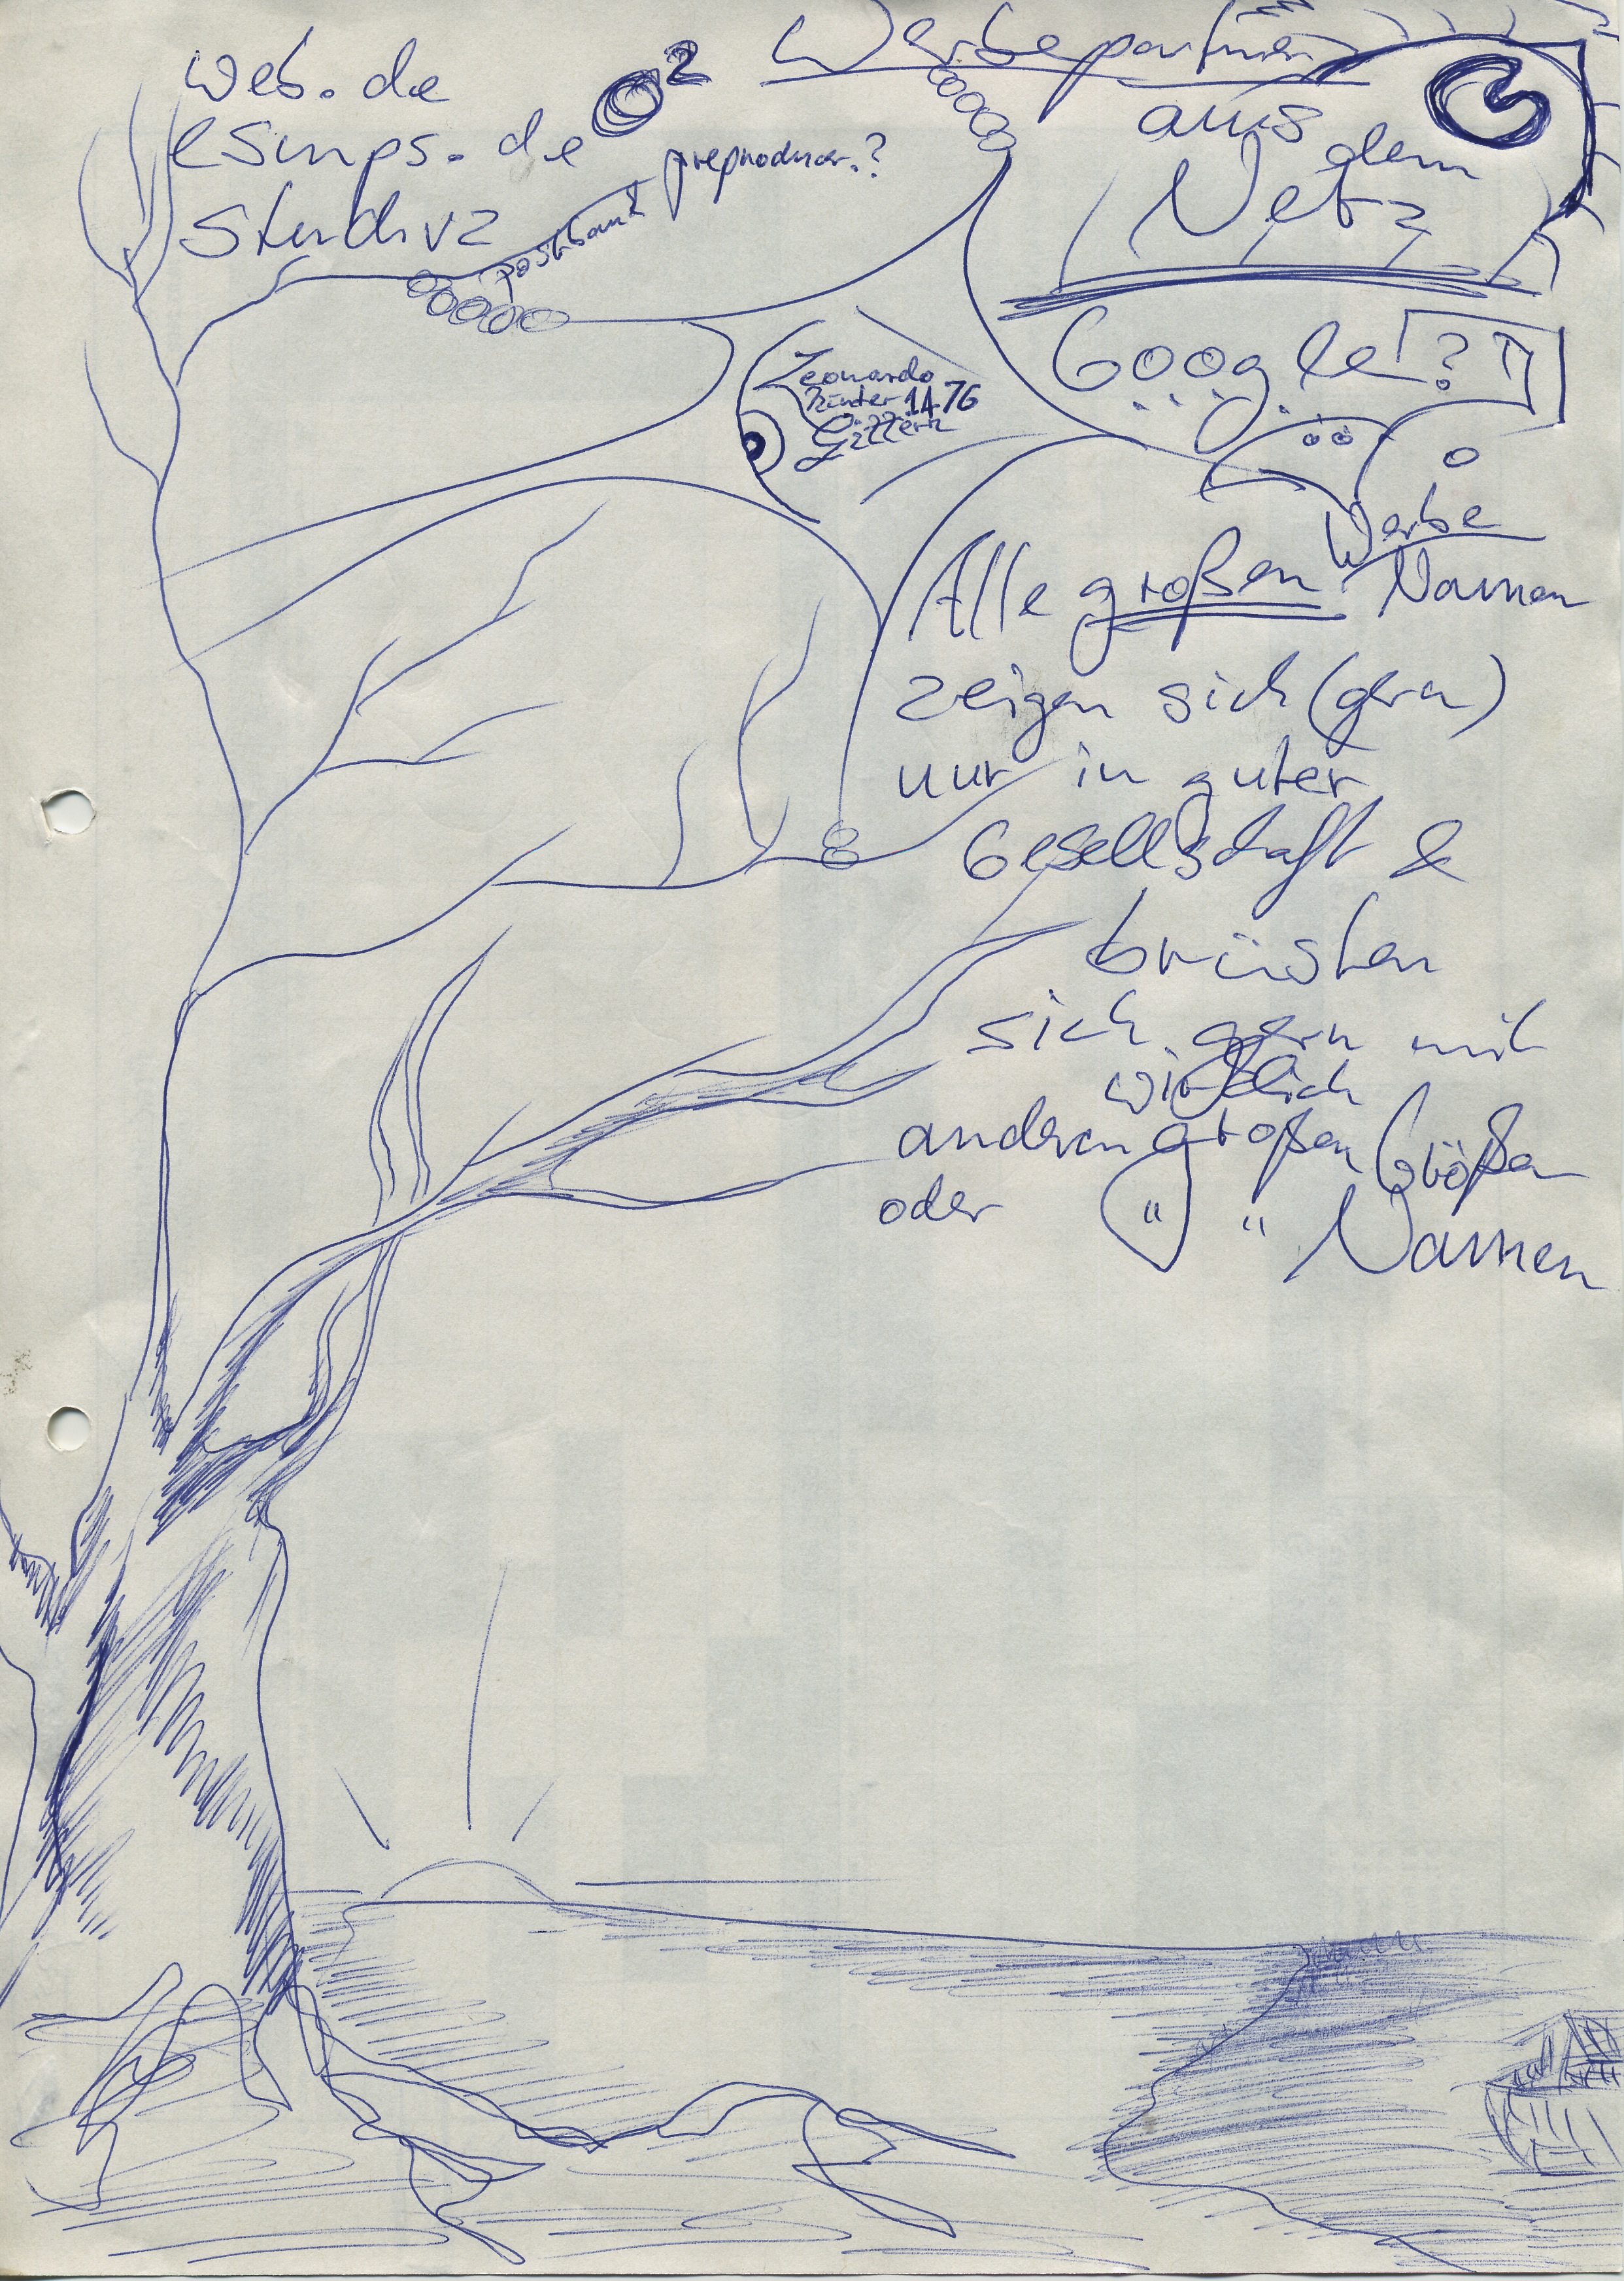 Werbepartner
aus
dem
Netz
web.de
esmps.de
O²
studivz
postbank
preproducer.?
Google?
Leonardo
hinter 1476
Gittern
Werbe
Alle großen Namen
zeigen sich (gern)
nur in guter
Gesellschaft &
brüsten
sich gern mit
wirklich
anderen großen Größen
oder " " Namen